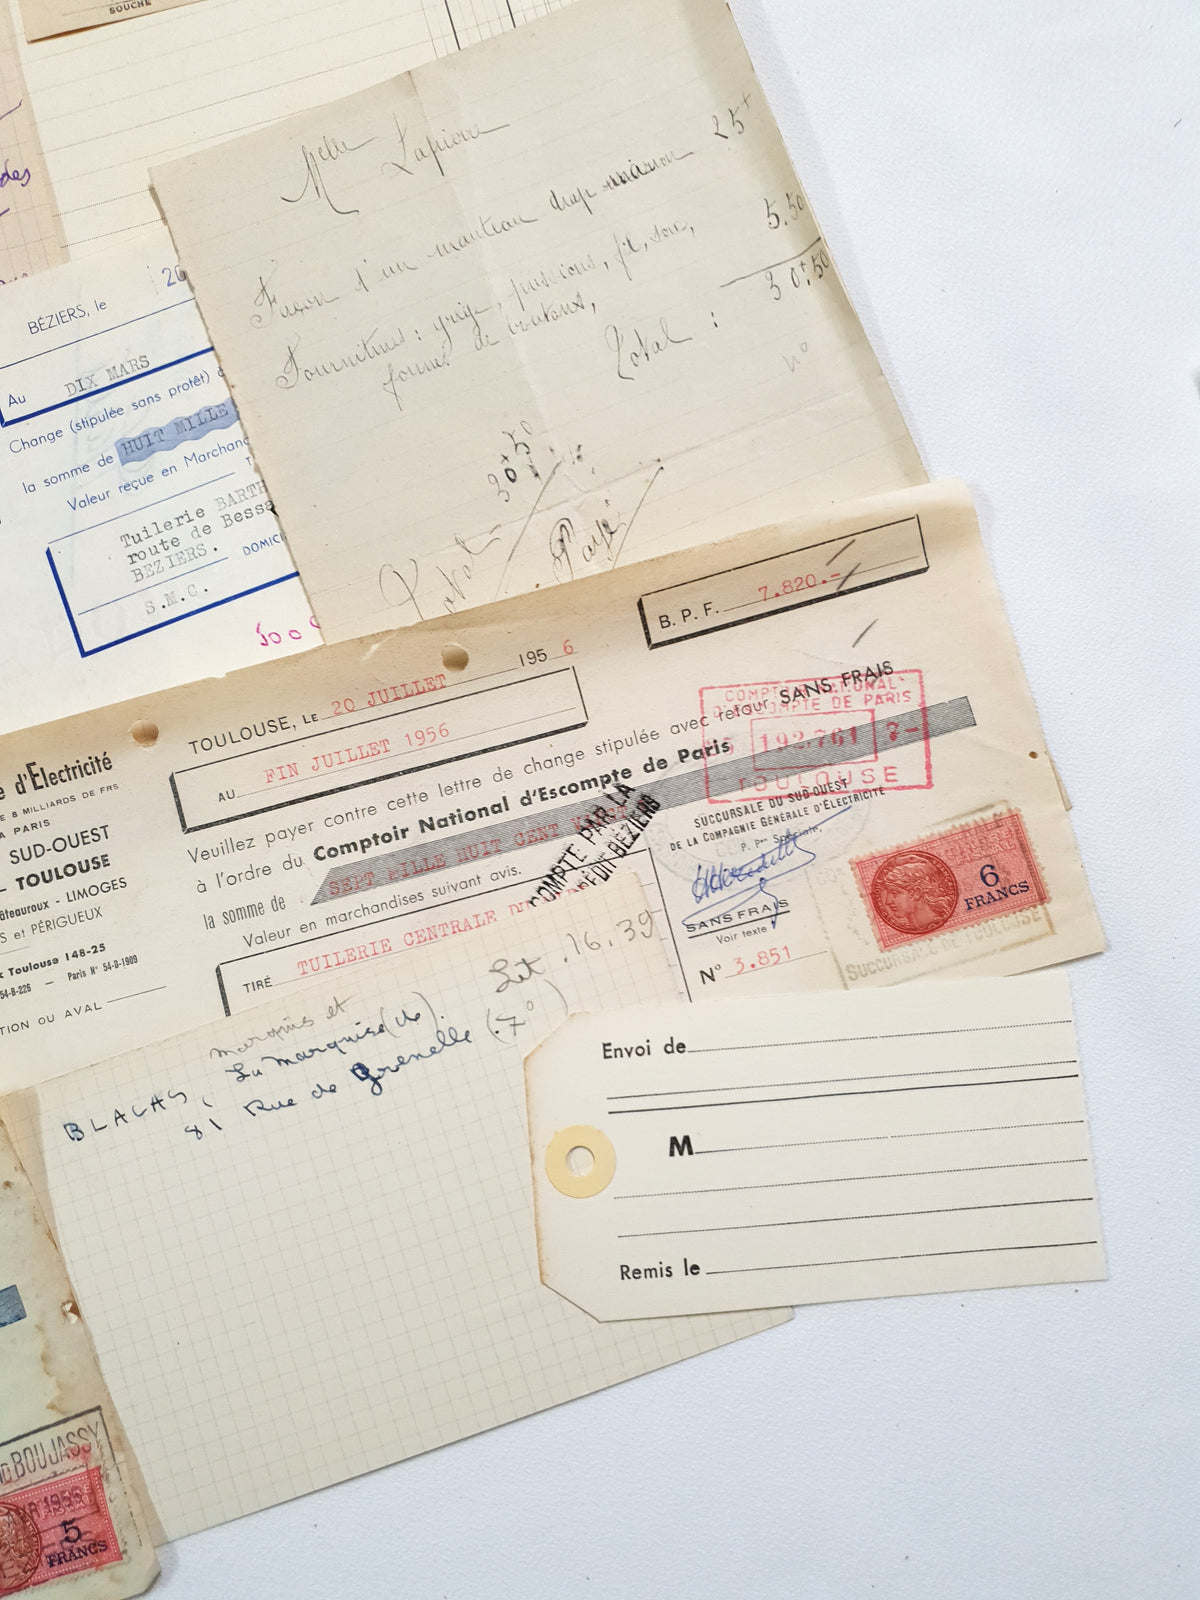 SOUCHE
des
Melle Lapierre
Façon d'un manteau drap marron 25+
Fournitures : grège, pressions, fil, soie, 5.50
formes de boutons,
Total : 30+50
30+50
Total
Payé
BÉZIERS, le 20
Au DIX MARS
Change (stipulée sans protêt)
la somme de HUIT MILLE
Valeur reçue en Marchand
Tuilerie BARTH
route de Bessa
BEZIERS. DOMICI
S.M.C.
B. P. F. 7.820.-
TOULOUSE, LE 20 JUILLET 1956
AU FIN JUILLET 1956
Veuillez payer contre cette lettre de change stipulée avec retour SANS FRAIS
à l'ordre du Comptoir National d'Escompte de Paris
la somme de SEPT MILLE HUIT CENT VINGT
Valeur en marchandises suivant avis.
TIRÉ TUILERIE CENTRALE
COMPTE PAR LA
CRÉDIT BÉZIERS
COMPTOIR NATIONAL
D'ESCOMPTE DE PARIS
TOULOUSE
SUCCURSALE DU SUD-OUEST
DE LA COMPAGNIE GÉNÉRALE D'ÉLECTRICITÉ
P. Pon Spéciale,
SANS FRAIS
Voir texte
N° 3.851
6
FRANCS
SUCCURSALE DE TOULOUSE
e d'Électricité
E 8 MILLIARDS DE FRS
A PARIS
SUD-OUEST
- TOULOUSE
âteauroux - LIMOGES
S et PÉRIGUEUX
x Toulouse 148-25
54-B-226 — Paris N° 54-B-1909
TION OU AVAL
Lit .16.39
marquis et
BLACAS, La marquise (de).
81 Rue de Grenelle (.7°)
Envoi de
M
Remis le
BOUJASSY
5
FRANCS